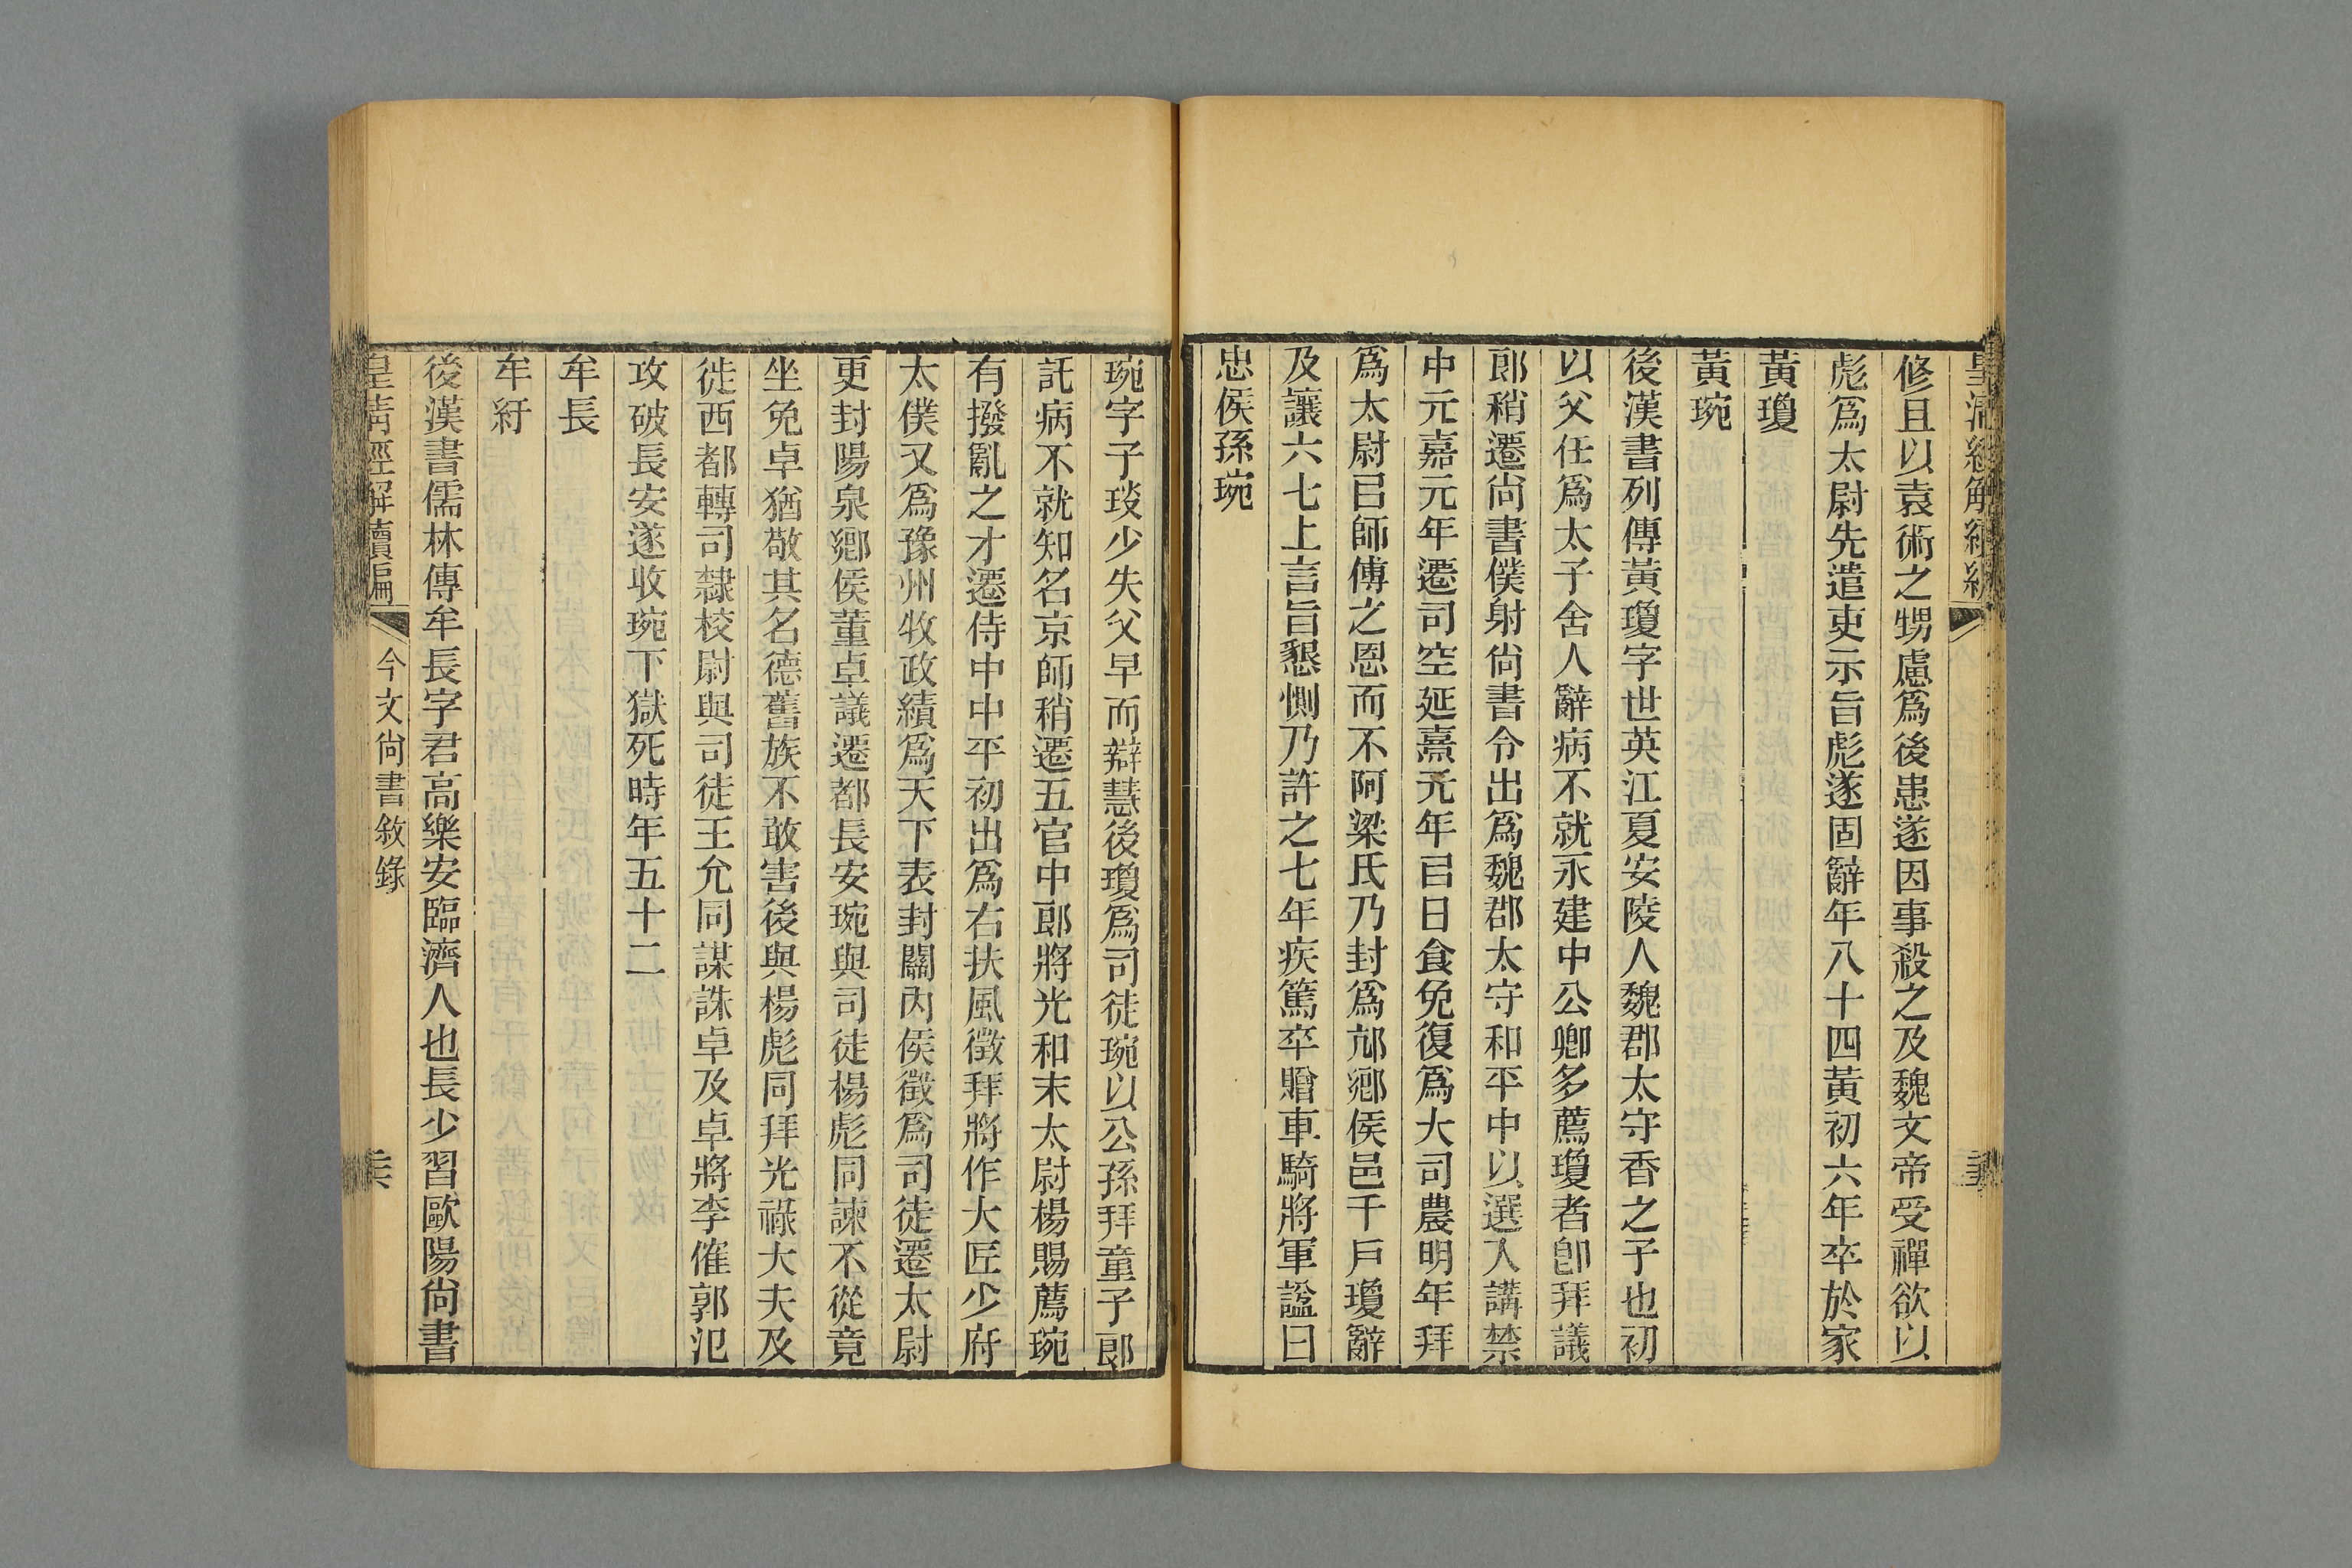 皇清經解續編
修且以袁術之甥慮爲後患遂因事殺之及魏文帝受禪欲以
彪爲太尉先遣吏示旨彪遂固辭年八十四黃初六年卒於家
黃瓊
黃琬
後漢書列傳黃瓊字世英江夏安陵人魏郡太守香之子也初
以父任爲太子舍人辭病不就永建中公卿多薦瓊者卽拜議
郎稍遷尙書僕射尙書令出爲魏郡太守和平中以選入講禁
中元嘉元年遷司空延熹元年㠯日食免復爲大司農明年拜
爲太尉㠯師傅之恩而不阿梁氏乃封爲邟鄉侯邑千戶瓊辭
及讓六七上言旨懇惻乃許之七年疾篤卒贈車騎將軍諡曰
忠侯孫琬
琬字子琰少失父早而辯慧後瓊爲司徒琬以公孫拜童子郎
託病不就知名京師稍遷五官中郎將光和末太尉楊賜薦琬
有撥亂之才遷侍中中平初出爲右扶風徵拜將作大匠少府
太僕又爲豫州牧政績爲天下表封關內侯徵爲司徒遷太尉
更封陽泉鄉侯董卓議遷都長安琬與司徒楊彪同諫不從竟
坐免卓猶敬其名德舊族不敢害後與楊彪同拜光祿大夫及
徙西都轉司隸校尉與司徒王允同謀誅卓及卓將李傕郭汜
攻破長安遂收琬下獄死時年五十二
牟長
牟紆
後漢書儒林傳牟長字君高樂安臨濟人也長少習歐陽尙書
皇清經解續編 今文尙書敘錄